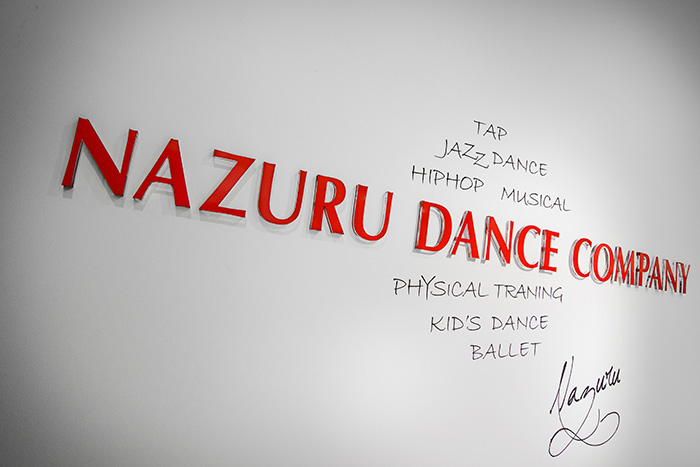 TAP
JAZZ DANCE
HIPHOP MUSICAL
NAZURU DANCE COMPANY
PHYSICAL TRANING
KID'S DANCE
BALLET
Nazuru